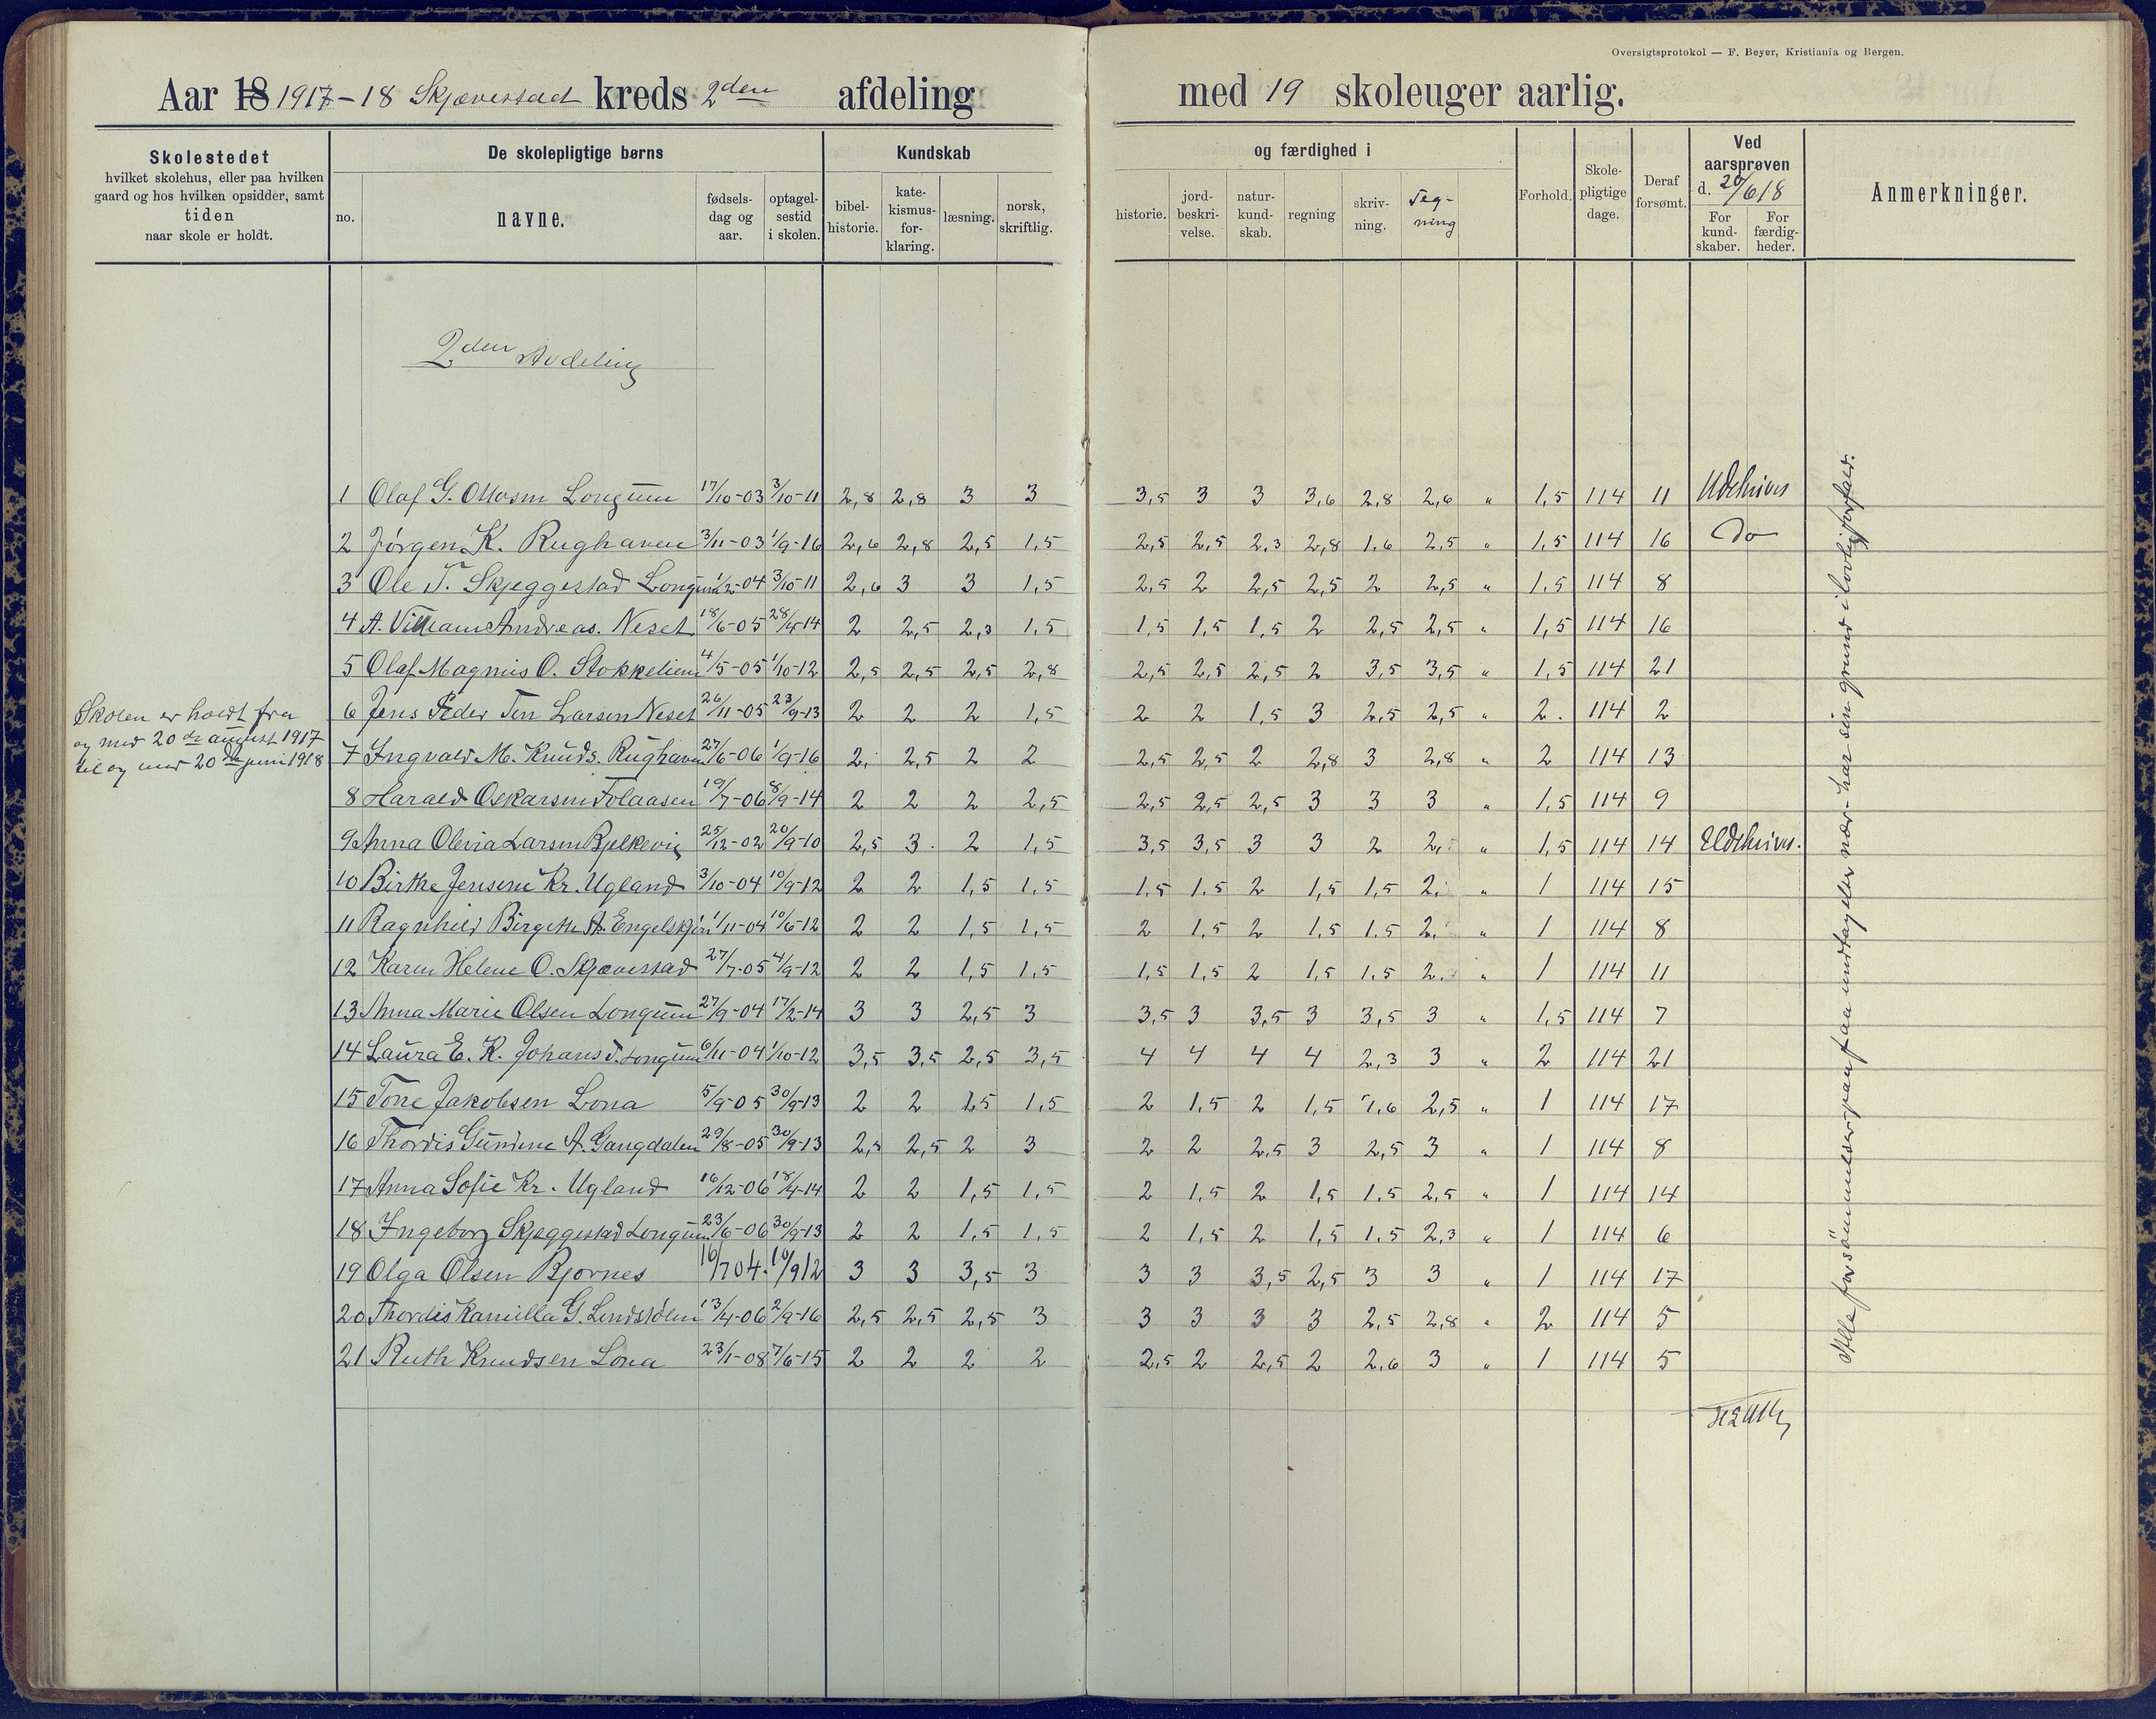 Oversigtsprotokol — F. Beyer, Kristiania og Bergen.
Aar 18 1917-18 Skjævestad kreds 2den afdeling med 19 skoleuger aarlig.
Skolestedet
hvilket skolehus, eller paa hvilken
gaard og hos hvilken opsidder, samt
tiden
naar skole er holdt.
De skolepligtige børns
no. navne. fødsels-dag og aar. optagel-sestid i skolen.
Kundskab og færdighed i
bibel-historie. kate-kismus-for-klaring. læsning. norsk, skriftlig. historie. jord-beskri-velse. natur-kund-skab. regning skriv-ning. Teg-ning
Forhold. Skole-pligtige dage. Deraf forsømt.
Ved aarsprøven d. 20/6 18
For kund-skaber. For færdig-heder.
Anmerkninger.
2den Avdeling
1 Olaf G. Longum 17/10-03 3/10-11 2,8 2,8 3 3 3,5 3 3 3,6 2,8 2,6 " 1,5 114 11 Udskrives
2 Jørgen K. Rughaven 3/11-03 1/9-16 2,6 2,8 2,5 1,5 2,5 2,5 2.3 2,8 1.6 2,5 " 1,5 114 16 Do
3 Ole T. Skjeggestad Longum 1/2-04 3/10-11 2,6 3 3 1,5 2,5 2 2,5 2,5 2 2,5 " 1,5 114 8
4 A. William Andreas. Neset 18/6-05 28/4-14 2 2,5 2,3 1,5 1,5 1,5 1,5 2 2,5 2,5 " 1,5 114 16
5 Olaf Magnus O. Stokkelien 4/5-05 1/10-12 2,5 2,5 2,5 2,8 2,5 2,5 2,5 2 3,5 3,5 " 1,5 114 21
6 Jens Peder Larsen Neset 26/11-05 23/9-13 2 2 2 1,5 2 2 1,5 3 2,5 2,5 " 2. 114 2
Skolen er holdt fra
og med 20de august 1917
til og med 20de juni 1918
7 Ingvald M. Knuds. Rughaven 27/6-06 1/9-16 2, 2,5 2 2 2,5 2,5 2 2,8 3 2,8 " 2 114 13
8 Harald Oskarsen Folaasen 19/7-06 8/9-14 2 2 2 2,5 2,5 2,5 2,5 3 3 3 " 1,5 114 9
9 Anna Olevia Larsen Bjelkevig 25/12-02 20/9-10 2,5 3. 2 1,5 3,5 3,5 3 3 2 2, " 1,5 114 14 Udskrives.
10 Birthe Jensene Kr. Ugland 3/10-04 10/9-12 2 2 1,5 1,5 1,5 1.5 2 1,5 1,5 2. " 1 114 15
11 Ragnhild Birgitte A. Engelskjøn 1/11-04 10/6-12 2 2 1,5 1,5 2 1,5 2 1,5 1.5 2, " 1 114 8
12 Karen Helene O. Skjævestad 27/7-05 4/9-12 2 2 1,5 1,5 1,5 1,5 2 1,5 1.5 2. " 1 114 11
13 Anna Marie Olsen Longum 27/9-04 17/2-14 3 3 2,5 3 3,5 3 3,5 3 3,5 3 " 1,5 114 7
14 Laura E. K. Johans d. Longum 6/11-04 1/10-12 3,5 3,5 2,5 3,5 4 4 4 4 2,3 3 " 2 114 21
15 Tone Jakobsen Lona 5/9-05 30/9-13 2 2 1,5 1,5 2 1,5 2 1,5 1.6 2,5 " 1 114 17
16 Thordis Gunene A. Gangdalen 29/8-05 30/9-13 2,5 2,5 2 3 2 2 2,5 3 2,5 3 " 1 114 8
17 Anna Sofie Kr. Ugland 16/12-06 18/4-14 2 2 1,5 1,5 2 1,5 2 1,5 1.5 2,5 " 1 114 14
18 Ingeborg Skjeggestad Longum 23/6-06 30/9-13 2 2 1,5 1,5 2 1,5 2 1,5 1.5 2,3 " 1 114 6
19 Olga Olsen Bjornes 16/7 04. 10/9 12 3 3 3,5 3 3 3 3,5 2,5 3 3 " 1 114 17
20 Thordis Kamilla G. Lindstølen 13/4-06 2/9-16 2,5 2,5 2,5 3 3 3 3 3 2,5 2,8 " 2 114 5
21 Ruth Knudsen Lona 23/1-08 7/6-15 2 2 2 2 2,5 2 2,5 2 2,6 3 " 1 114 5
Alle forsømmelser paa undtagelse nær har sin grund i lovlig forfald.